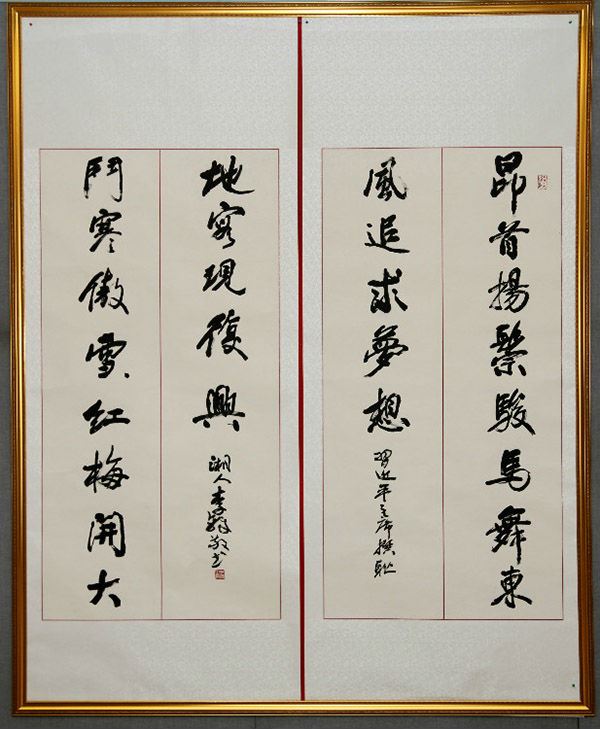 昂首揚鬃駿馬舞東
風追求夢想
習近平主席撰聯
鬥寒傲雪紅梅開大
地實現復興
湘人李敬書